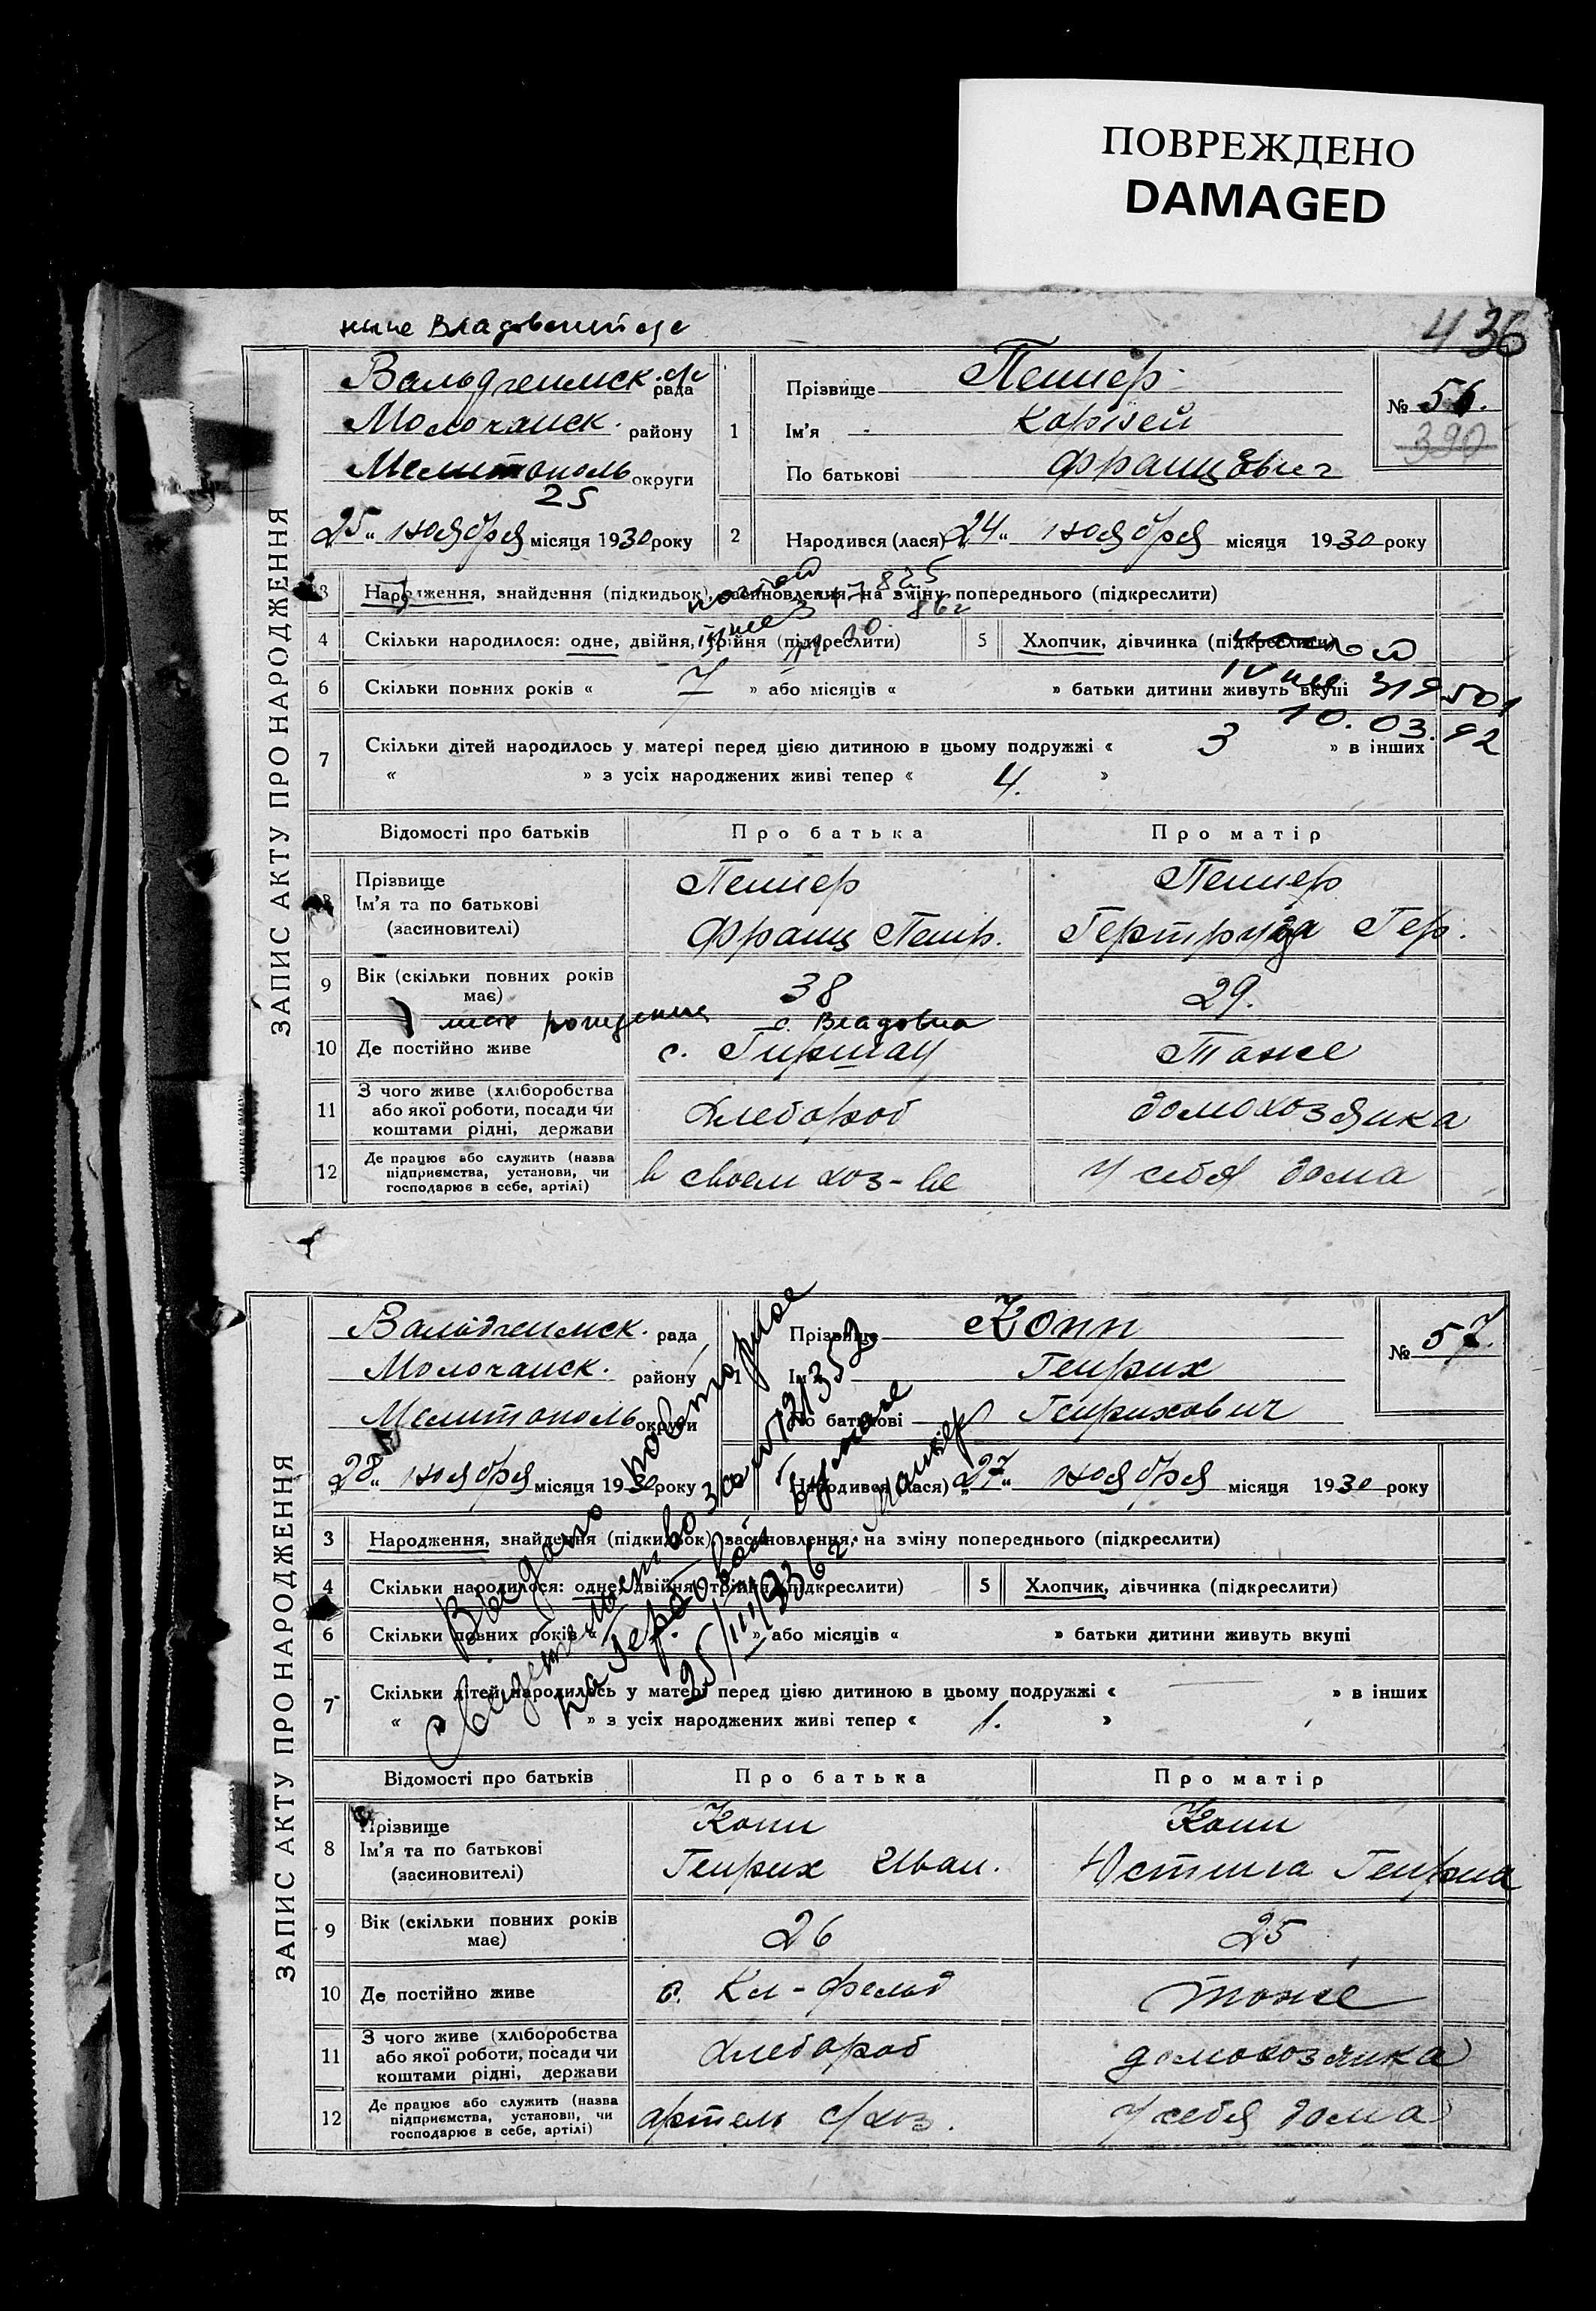 ПОВРЕЖДЕНО
DAMAGED
436
ныне
ЗАПИС АКТУ ПРО НАРОДЖЕННЯ
Вальдгеимск. с/с рада
Молочанск. району
Мелитополь округи
25
„25" ноября місяця 1930 року
1 Прізвище Пеннер
Ім'я Корней
По батькові Францович
№ 56.
390
2 Народився (лася) „24" ноября місяця 1930 року
3 Народження, знайдення (підкидьок), засиновлення, на зміну попереднього (підкреслити)
4 Скільки народилося: одне, двійня, трійня (підкреслити) 5 Хлопчик, дівчинка (підкреслити)
6 Скільки повних років « 7 » або місяців « » батьки дитини живуть вкупі
319501
10.03.92
7 Скільки дітей народилось у матері перед цією дитиною в цьому подружжі « 3 » в інших
« » з усіх народжених живі тепер « 4. »
Відомості про батьків Про батька Про матір
8 Прізвище Пеннер Пеннер
Ім'я та по батькові
(засиновителі) Франц Петр. Гертруда Гер.
9 Вік (скільки повних років має) 38 29.
рождения с.
10 Де постійно живе с. Гиршау Тоже
11 З чого живе (хліборобства
або якої роботи, посади чи
коштами рідні, держави Хлебороб домохозяика
12 Де працює або служить (назва
підприємства, установи, чи
господарює в себе, артілі) в своем хоз-ве у себя дома
ЗАПИС АКТУ ПРО НАРОДЖЕННЯ
Вальдгеимск. рада
Молочанск. району
Мелитополь округи
„28" ноября місяця 1930 року
1 Прізвище Копп
Ім'я Генрих
По батькові Генрихович
№ 57.
Народився (лася) „27" ноября місяця 1930 року
3 Народження, знайдення (підкидьок), засиновлення, на зміну попереднього (підкреслити)
4 Скільки народилося: одне, двійня, трійня (підкреслити) 5 Хлопчик, дівчинка (підкреслити)
6 Скільки повних років « » або місяців « » батьки дитини живуть вкупі
7 Скільки дітей народилось у матері перед цією дитиною в цьому подружжі « — » в інших
« » з усіх народжених живі тепер « 1. »
Выдано повторное
свидетельство за №
на Гербовой бумаге
25/III/1936 г.
Відомості про батьків Про батька Про матір
8 Прізвище Копп Копп
Ім'я та по батькові
(засиновителі) Генрих Иван. Юстина Генрих
9 Вік (скільки повних років має) 26 25
10 Де постійно живе с. Кл-фельд тоже
11 З чого живе (хліборобства
або якої роботи, посади чи
коштами рідні, держави Хлебороб домохозяика
12 Де працює або служить (назва
підприємства, установи, чи
господарює в себе, артілі) артель с/хоз. у себя дома